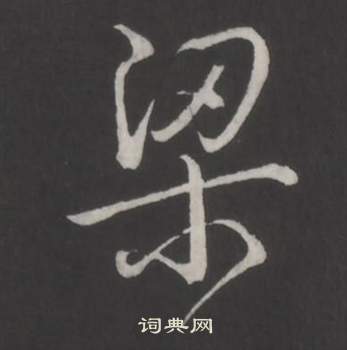 梁
词典网